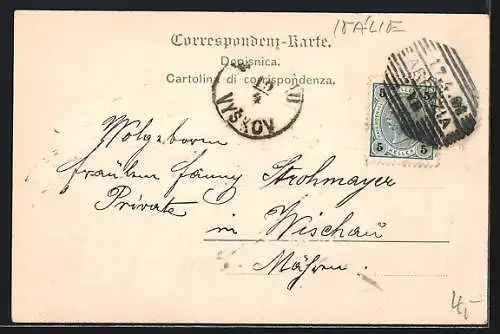 ITÁLIE
Correspondenz-Karte.
Dopisnica.
Cartolina di corrispondenza.
19
4
VYŠKOV
17.4.01
5 5
5 HELLER 5
Wolgeboren
Fräulein Fanny Strohmayer
Private
in Wischau
Mähren.
4,-